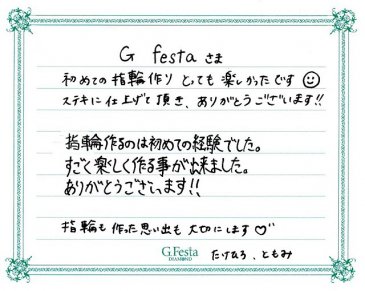 G festa さま
初めての指輪作り とっても楽しかったです
ステキに仕上げて頂き、ありがとうございます!!
指輪作るのは初めての経験でした。
すごく楽しく作る事が出来ました。
ありがとうございます!!
指輪も作った思い出も大切にします♡
G.Festa
DIAMOND
たけひろ、ともみ